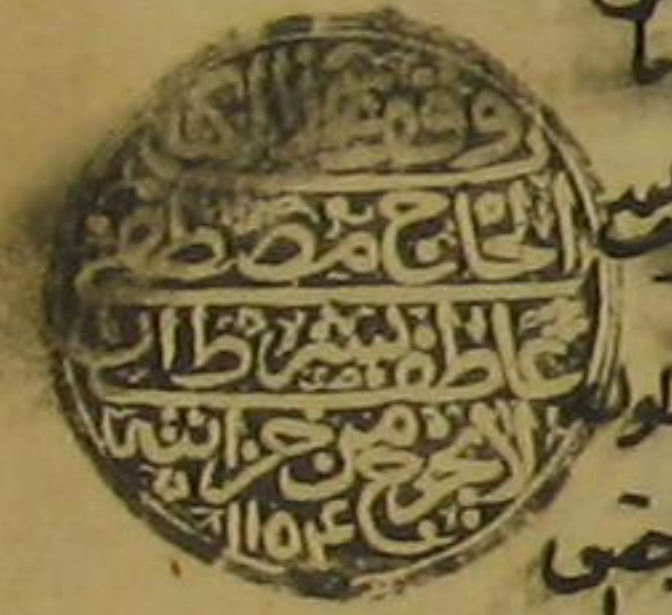 وقف
الحاج مصطفى
عاطف بشرط ان
لا يخرج من خزانته
١١٥٤